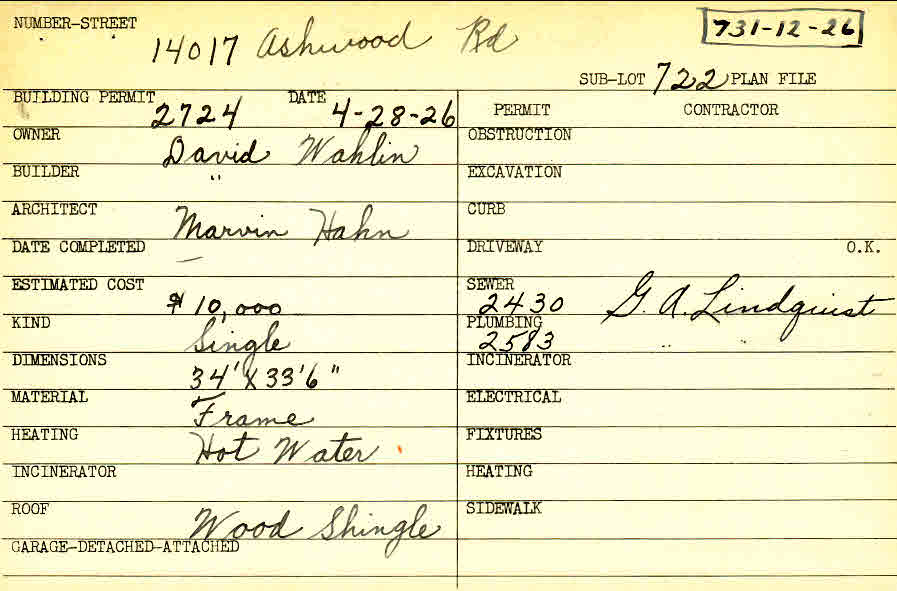 NUMBER-STREET 14017 Ashwood Rd 731-12-26
SUB-LOT 722 PLAN FILE
BUILDING PERMIT 2724 DATE 4-28-26
PERMIT CONTRACTOR
OWNER David Wahlin
OBSTRUCTION
BUILDER "
EXCAVATION
ARCHITECT Marvin Hahn
CURB
DATE COMPLETED —
DRIVEWAY O.K.
ESTIMATED COST $10,000
SEWER 2430 G. A. Lindquist
KIND Single
PLUMBING 2583 " "
DIMENSIONS 34' X 33'6"
INCINERATOR
MATERIAL Frame
ELECTRICAL
HEATING Hot Water
FIXTURES
INCINERATOR
HEATING
ROOF Wood Shingle
SIDEWALK
GARAGE-DETACHED-ATTACHED